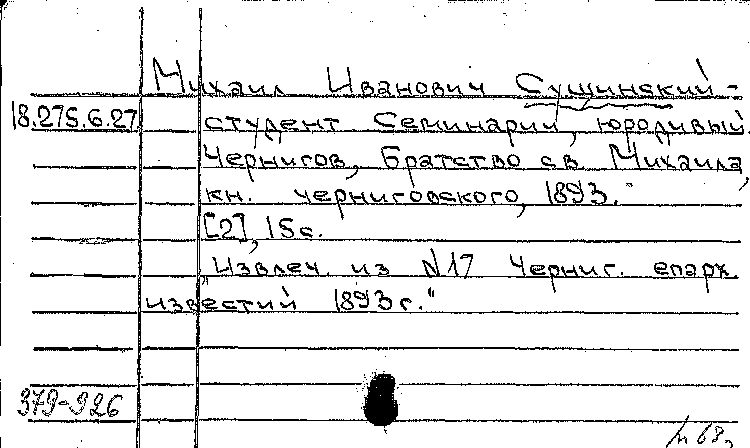 Михаил Иванович Сущинский -
18.275.6.27
студент Семинарии, юродивый.
Чернигов, Братство св. Михаила,
кн. черниговского, 1893.
[2], 15с.
"Извлеч. из N17 Черниг. епарх.
известий 1893г."
379-926
м 68г